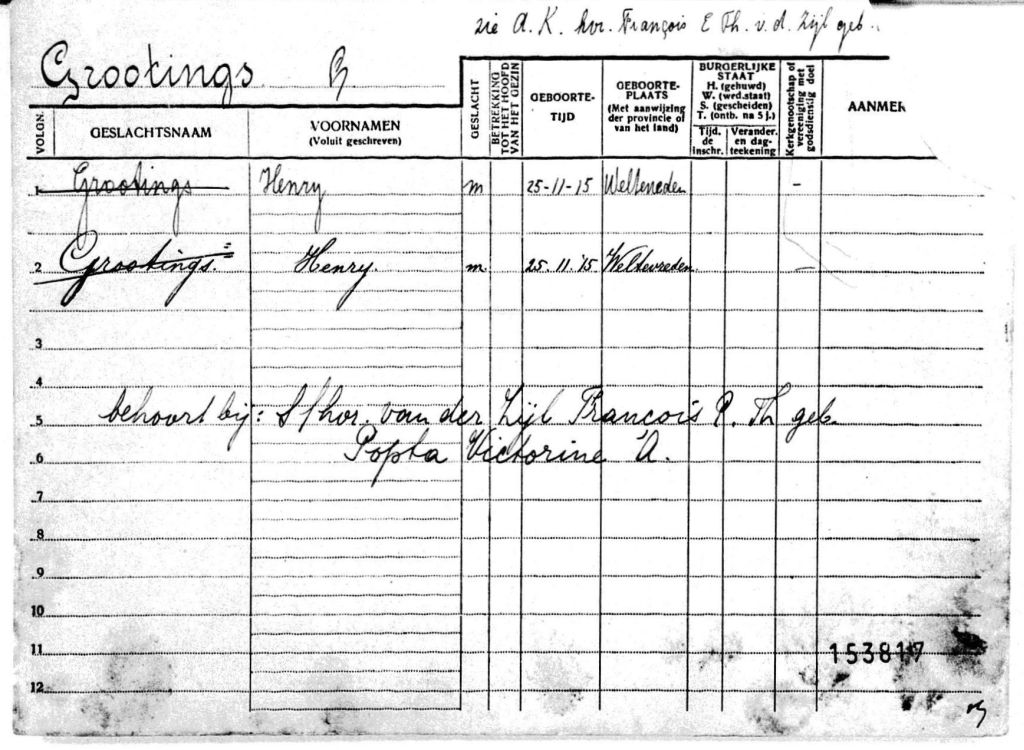 zie A. K. hvr. François E Th. v. d. Zijl geb.
Grootings
VOLGN.
GESLACHTSNAAM
VOORNAMEN
(Voluit geschreven)
GESLACHT
BETREKKING TOT HET HOOFD VAN HET GEZIN
GEBOORTE-
TIJD
GEBOORTE-
PLAATS
(Met aanwijzing der provincie of van het land)
BURGERLIJKE STAAT
H. (gehuwd)
W. (wed.staat)
S. (gescheiden)
T. (ontb. na 5 j.)
Tijd. de inschr.
Verander. en dag-teekening
Kerkgenootschap of vereeniging met godsdienstig doel
AANMER
1 Grootings Henry m 25-11-15 Welteneden -
2 Grootings. Henry. m. 25.11.'15 Weltevreden. -
3
4
behoort bij: van der Zijl Francois P. Th geb.
5
Popta Victorine A.
6
7
8
9
10
11 153817
12